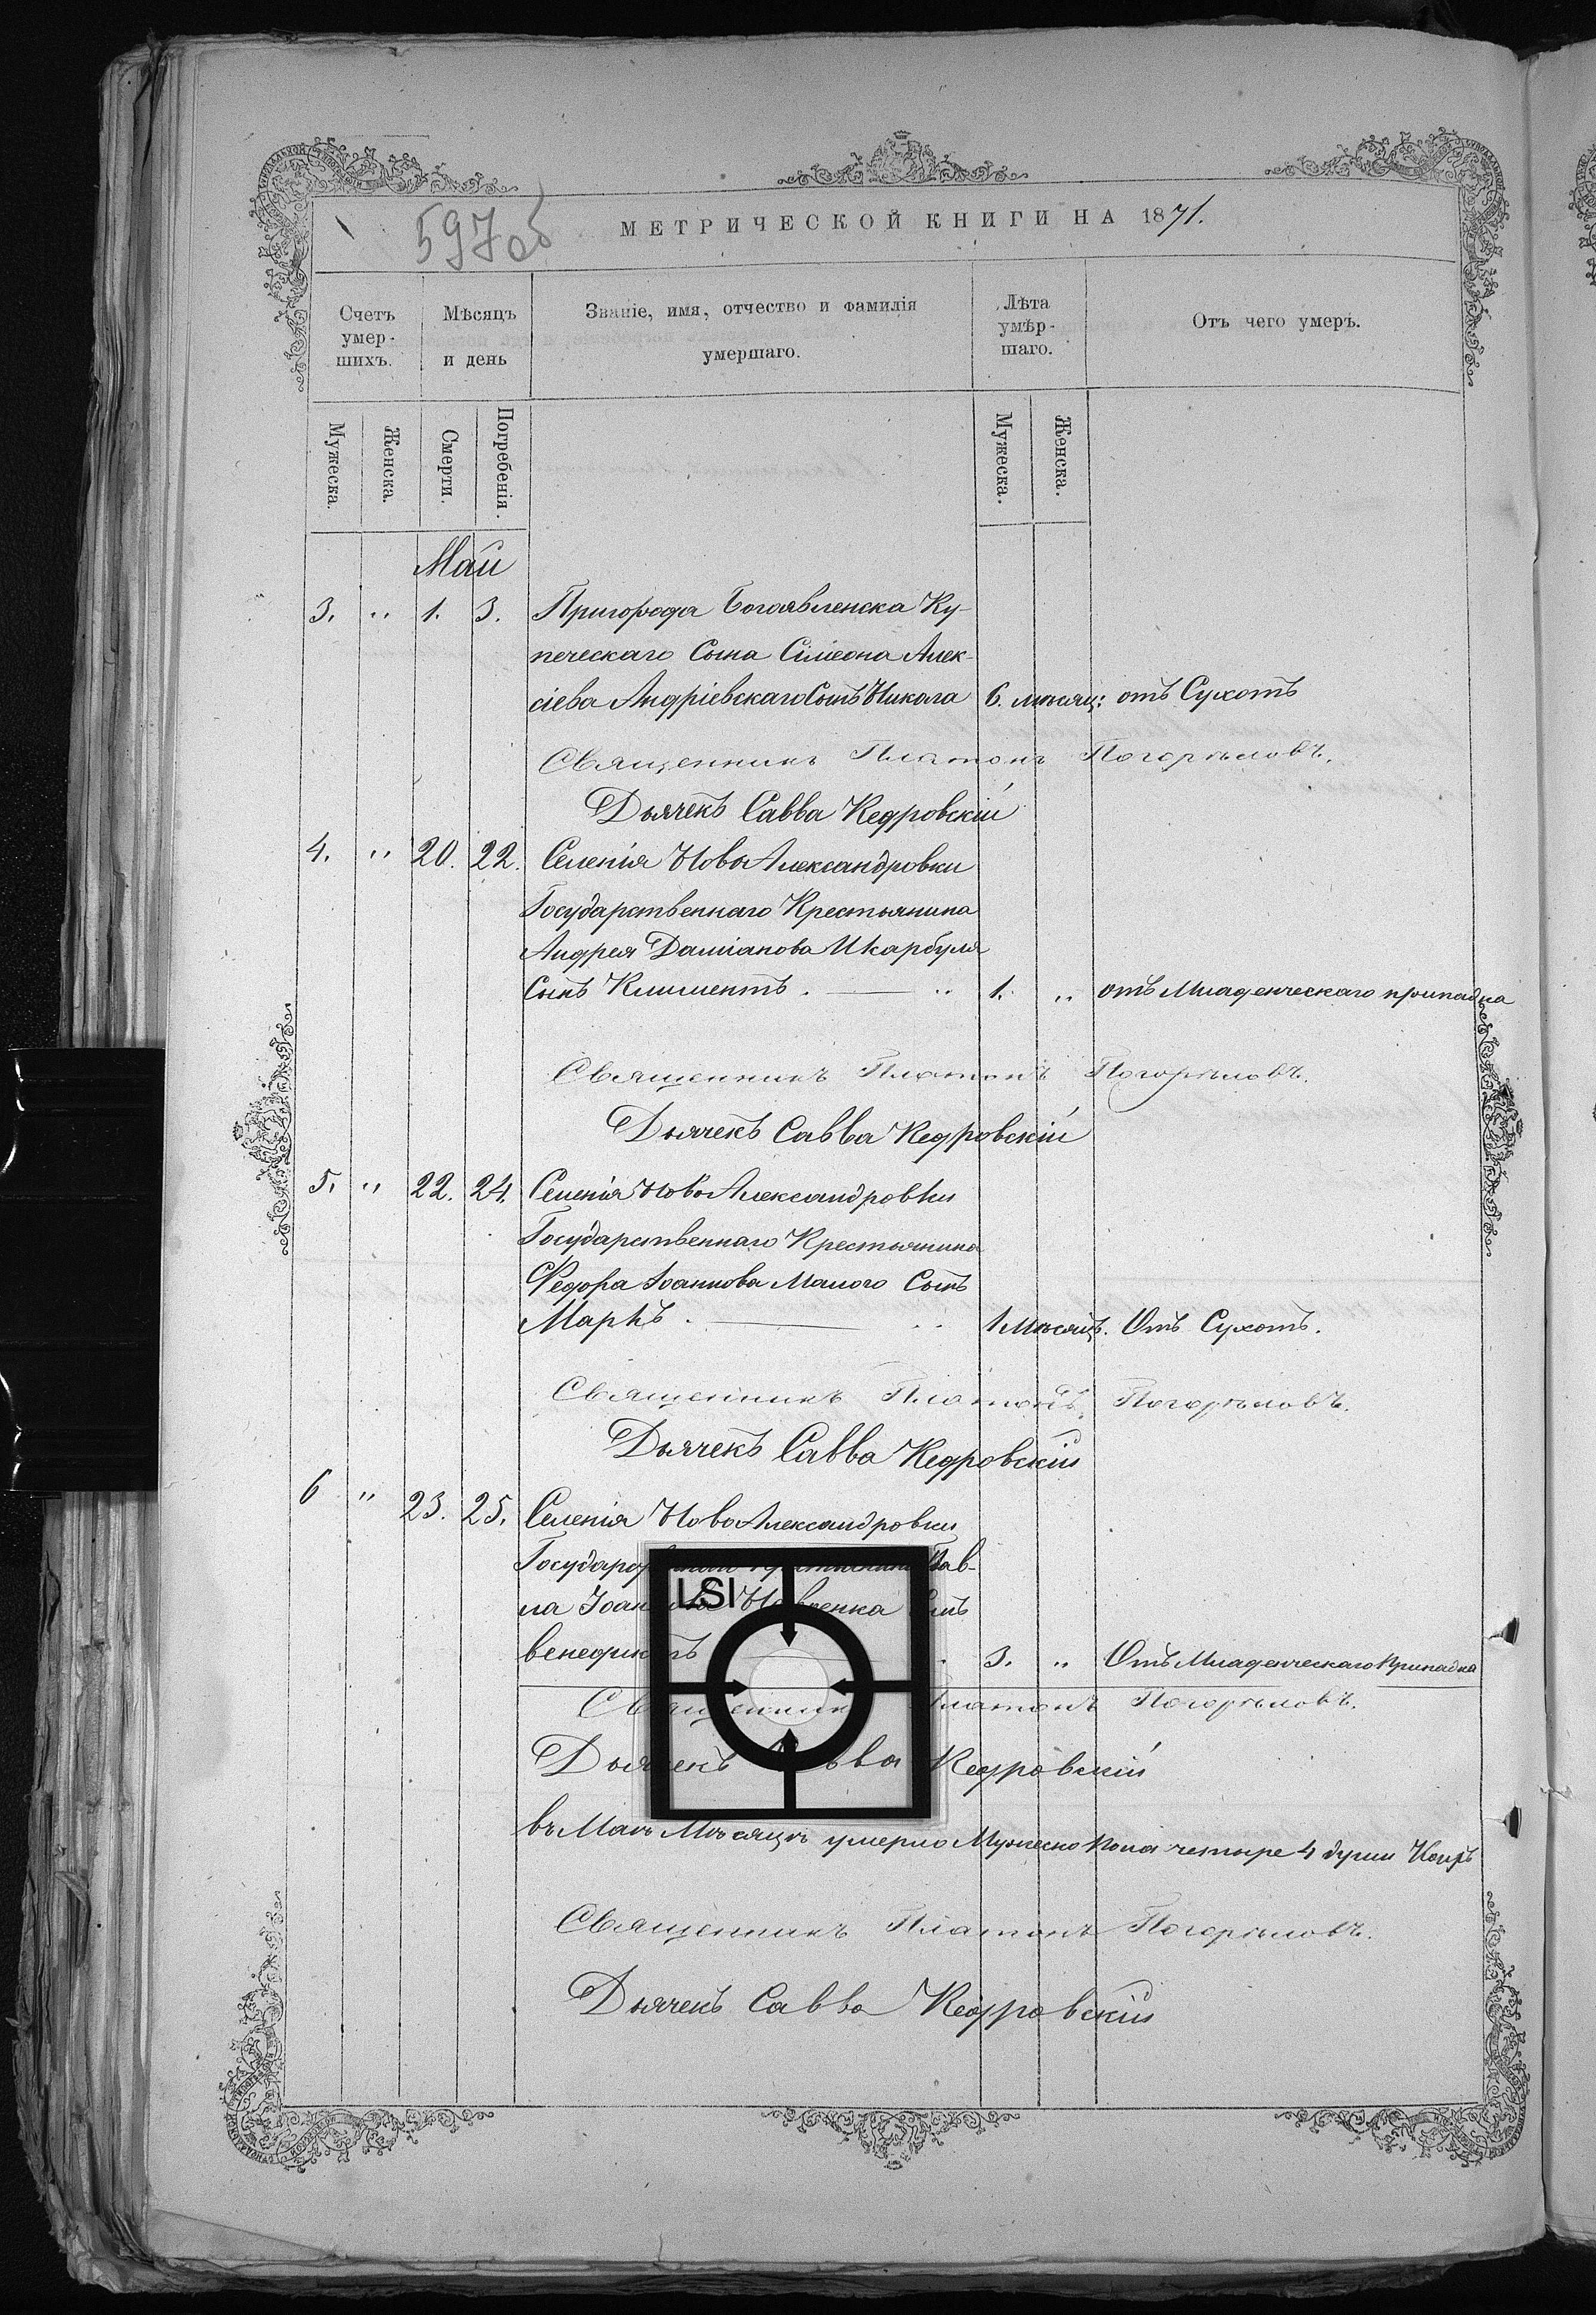 597 об
МЕТРИЧЕСКОЙ КНИГИ НА 1871.
Счетъ умер-шихъ. Мѣсяцъ и день Званіе, имя, отчество и фамилія умершаго. Лѣта умѣр-шаго. Отъ чего умеръ.
Мужеска. Женска. Смерти. Погребенія. Мужеска. Женска.
Май
3. „ 1. 3. Пригорода Богоявленска Ку-
печескаго Сына Сімеона Алек-
сіева Андріевскаго Сынъ Никола 6. мѣсяц: отъ Сухотъ
Священникъ Платонъ Погорѣловъ.
Дьячекъ Савва Кедровскій
4. „ 20. 22. Селенія НовоАлександровки
Государственнаго Крестьянина
Андрея Даміанова Шкарбуля
Сынъ Климентъ. 1. „ отъ Младенческаго припадка
Священникъ Платонъ Погорѣловъ.
Дьячекъ Савва Кедровскій
5. „ 22. 24. Селенія НовоАлександровки
Государственнаго Крестьянина
Федора Іоаннова Малого Сынъ
Маркъ. 1 Мѣсяцъ. Отъ Сухотъ.
Священникъ Платонъ Погорѣловъ.
Дьячекъ Савва Кедровскій
6 „ 23. 25. Селенія НовоАлександровки
Пав-
ла Сынъ
Венедиктъ 3. „ Отъ Младенческаго Припадка
LSI
Священникъ Платонъ Погорѣловъ.
Дьячекъ Савва Кедровскій
въ Маѣ Мѣсяцѣ умерло Мужеско Пола четыре 4 души
Священникъ Платонъ Погорѣловъ.
Дьячекъ Савва Кедровскій